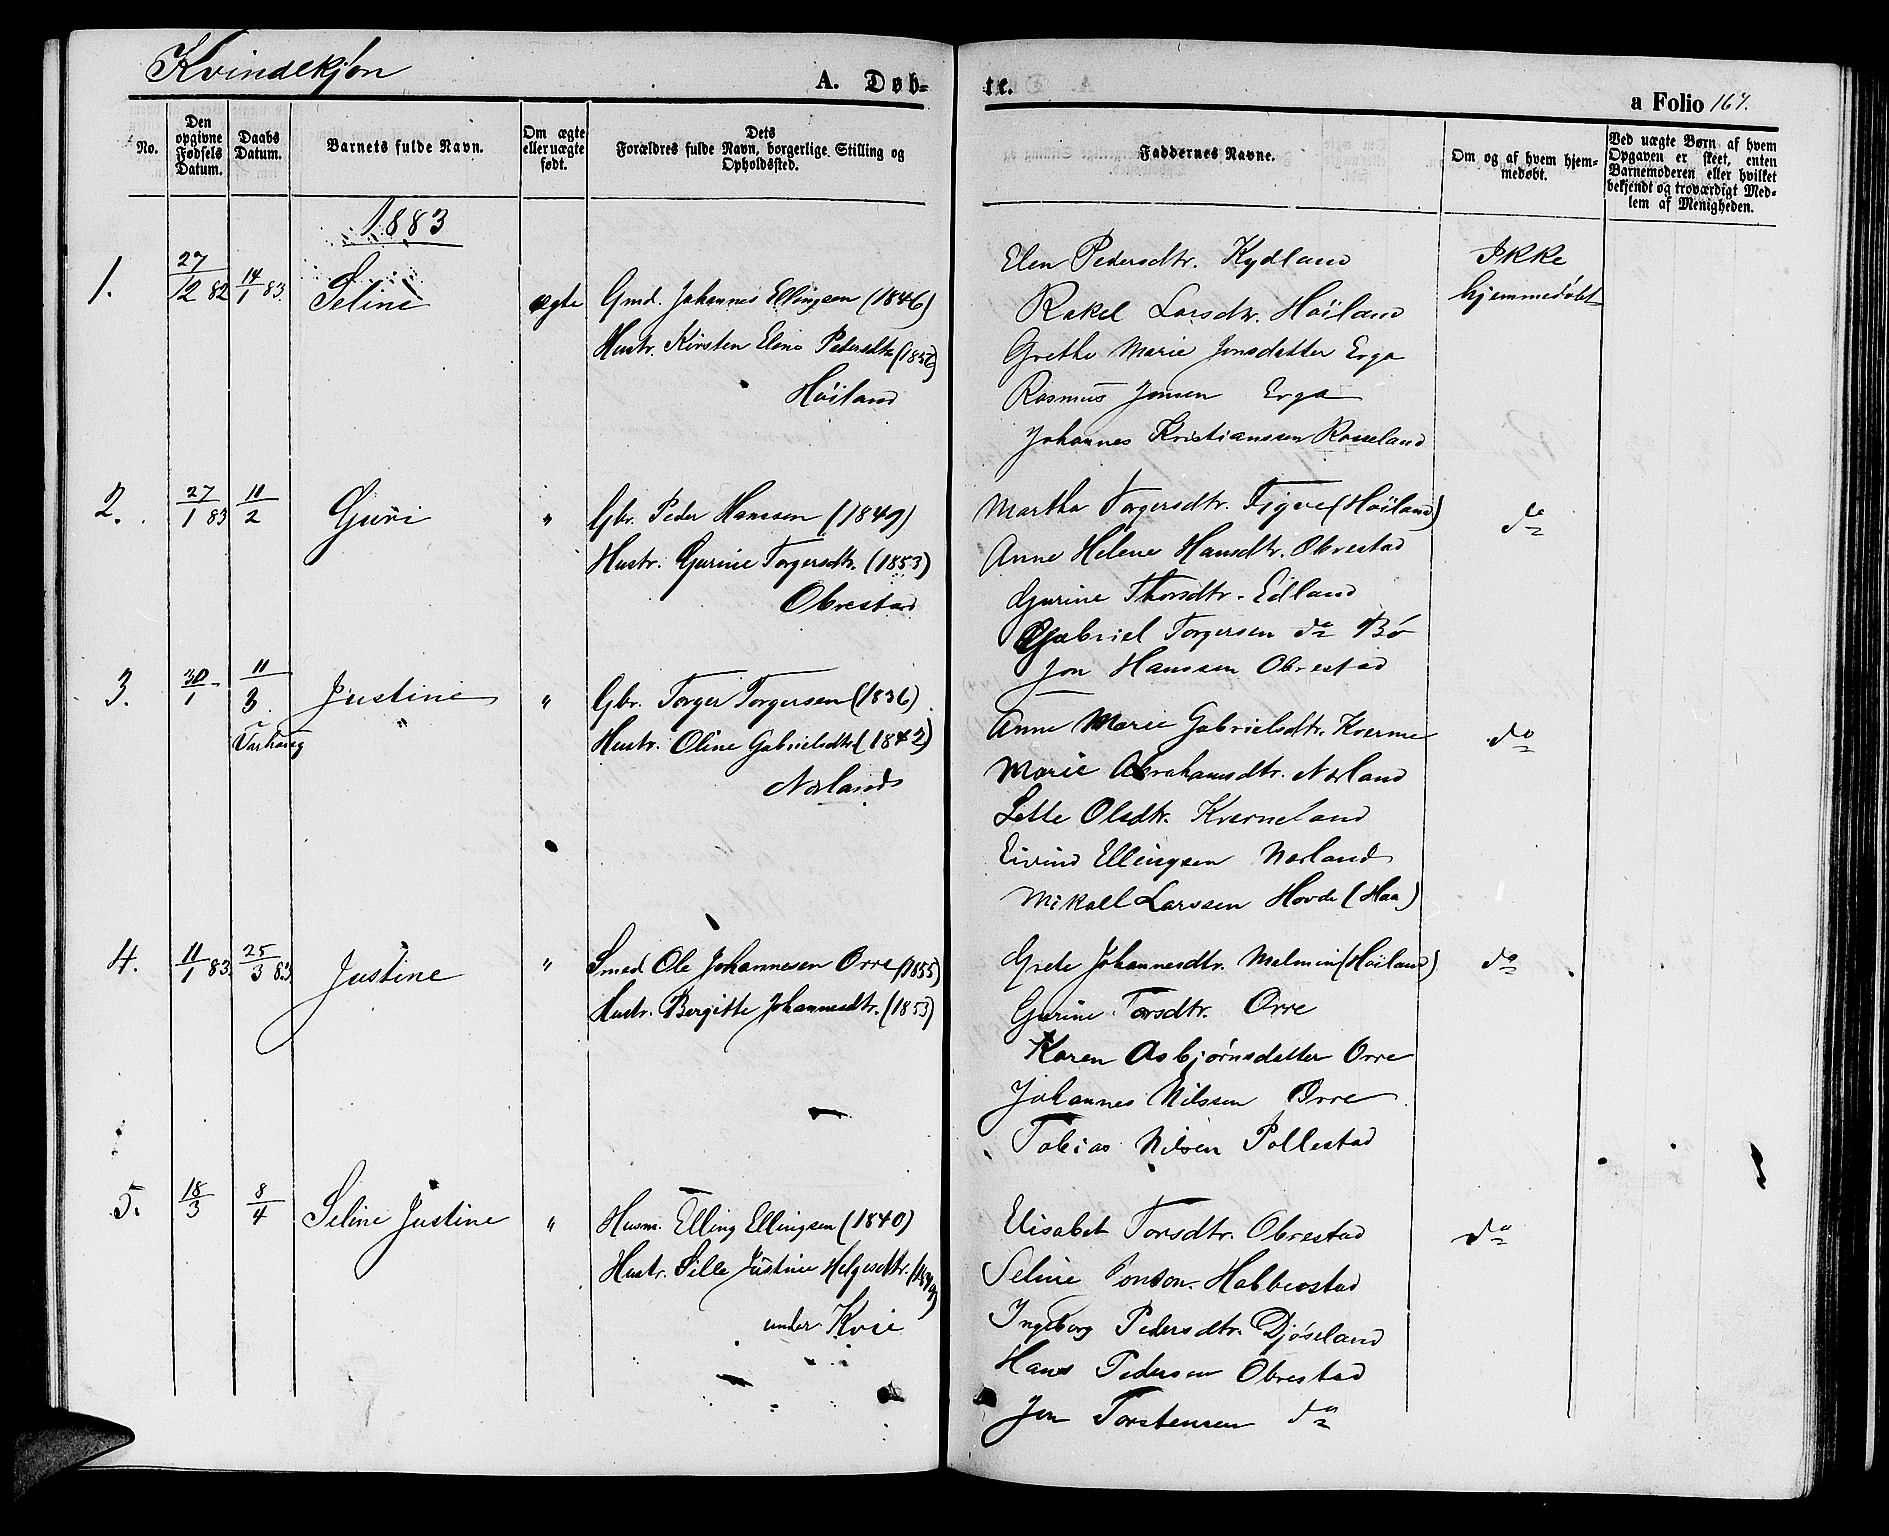 Kvindekjøn
A. Døb-
te.
a Folio 167.
No.
Den opgivne Fødsels Datum.
Daabs Datum.
Barnets fulde Navn.
Om ægte eller uægte født.
Dets Forældres fulde Navn, borgerlige Stilling og Opholdssted.
Faddernes Navne.
Om og af hvem hjemmedøbt.
Ved uægte Børn af hvem Opgaven er skeet, enten Barnemoderen eller hvilket bekjendt og troværdigt Medlem af Menigheden.
1883
1.
27/12 82
14/1 83.
Seline
ægte
Gmd. Johannes Ellingsen (1846)
Hustr. Kirsten Elene Pedersdtr
Höiland
Elen Pedersdtr. Kydland
Rakel Larsdtr. Höiland
Grethe Marie Jonsdatter Erga
Rasmus Jonsen Erga
Johannes Kristianssen Rosseland
Ikke
hjemmedøbt
2.
27/1 83
11/2
Guri
"
Gbr. Peder Hanssen (1849)
Hustr. Gurine Torgersdtr. (1853)
Obrestad
Martha Torgersdtr. Tjgve (Höiland)
Anne Helene Hansdtr. Obrestad
Gurine Thorsdtr. Edland
Gabriel Torgersen do Bö
Jon Hanssen Obrestad
do
3.
30/1
11/3.
Varhaug
Justine
"
"
Gbr. Torger Torgersen (1836)
Hustr. Oline Gabrielsdtr (1842)
Nærland
Anne Marie Gabrielsdtr. Kverme
Marie Abrahamsdtr. Nærland
Lette Olsdtr. Kverneland
Eivind Ellingsen Nærland
Mikall Larssen Hovde (Haa)
do
4.
11/1 83.
25/3 83
Justine
"
Smed Ole Johannesen Orre (1855)
Hustr. Bergitte Johannesdtr. (1853)
Grete Johannesdtr. Malmin (Höiland)
Gurine Torsdtr. Orre
Karen Asbjørnsdatter Orre
Johannes Nilssen Orre
Tobias Nilsen Pollestad
do
5.
18/3
8/4
Seline Justine
"
Husm. Elling Ellingsen (1840)
Hustr. Sille Justine Helgesdtr.
under Kvie
Elisabet Torsdtr. Obrestad
Seline Jonson. Habbestad
Ingeborg Pedersdtr. Djøseland
Hans Pedersen Obrestad
Jon Torstensen do
do